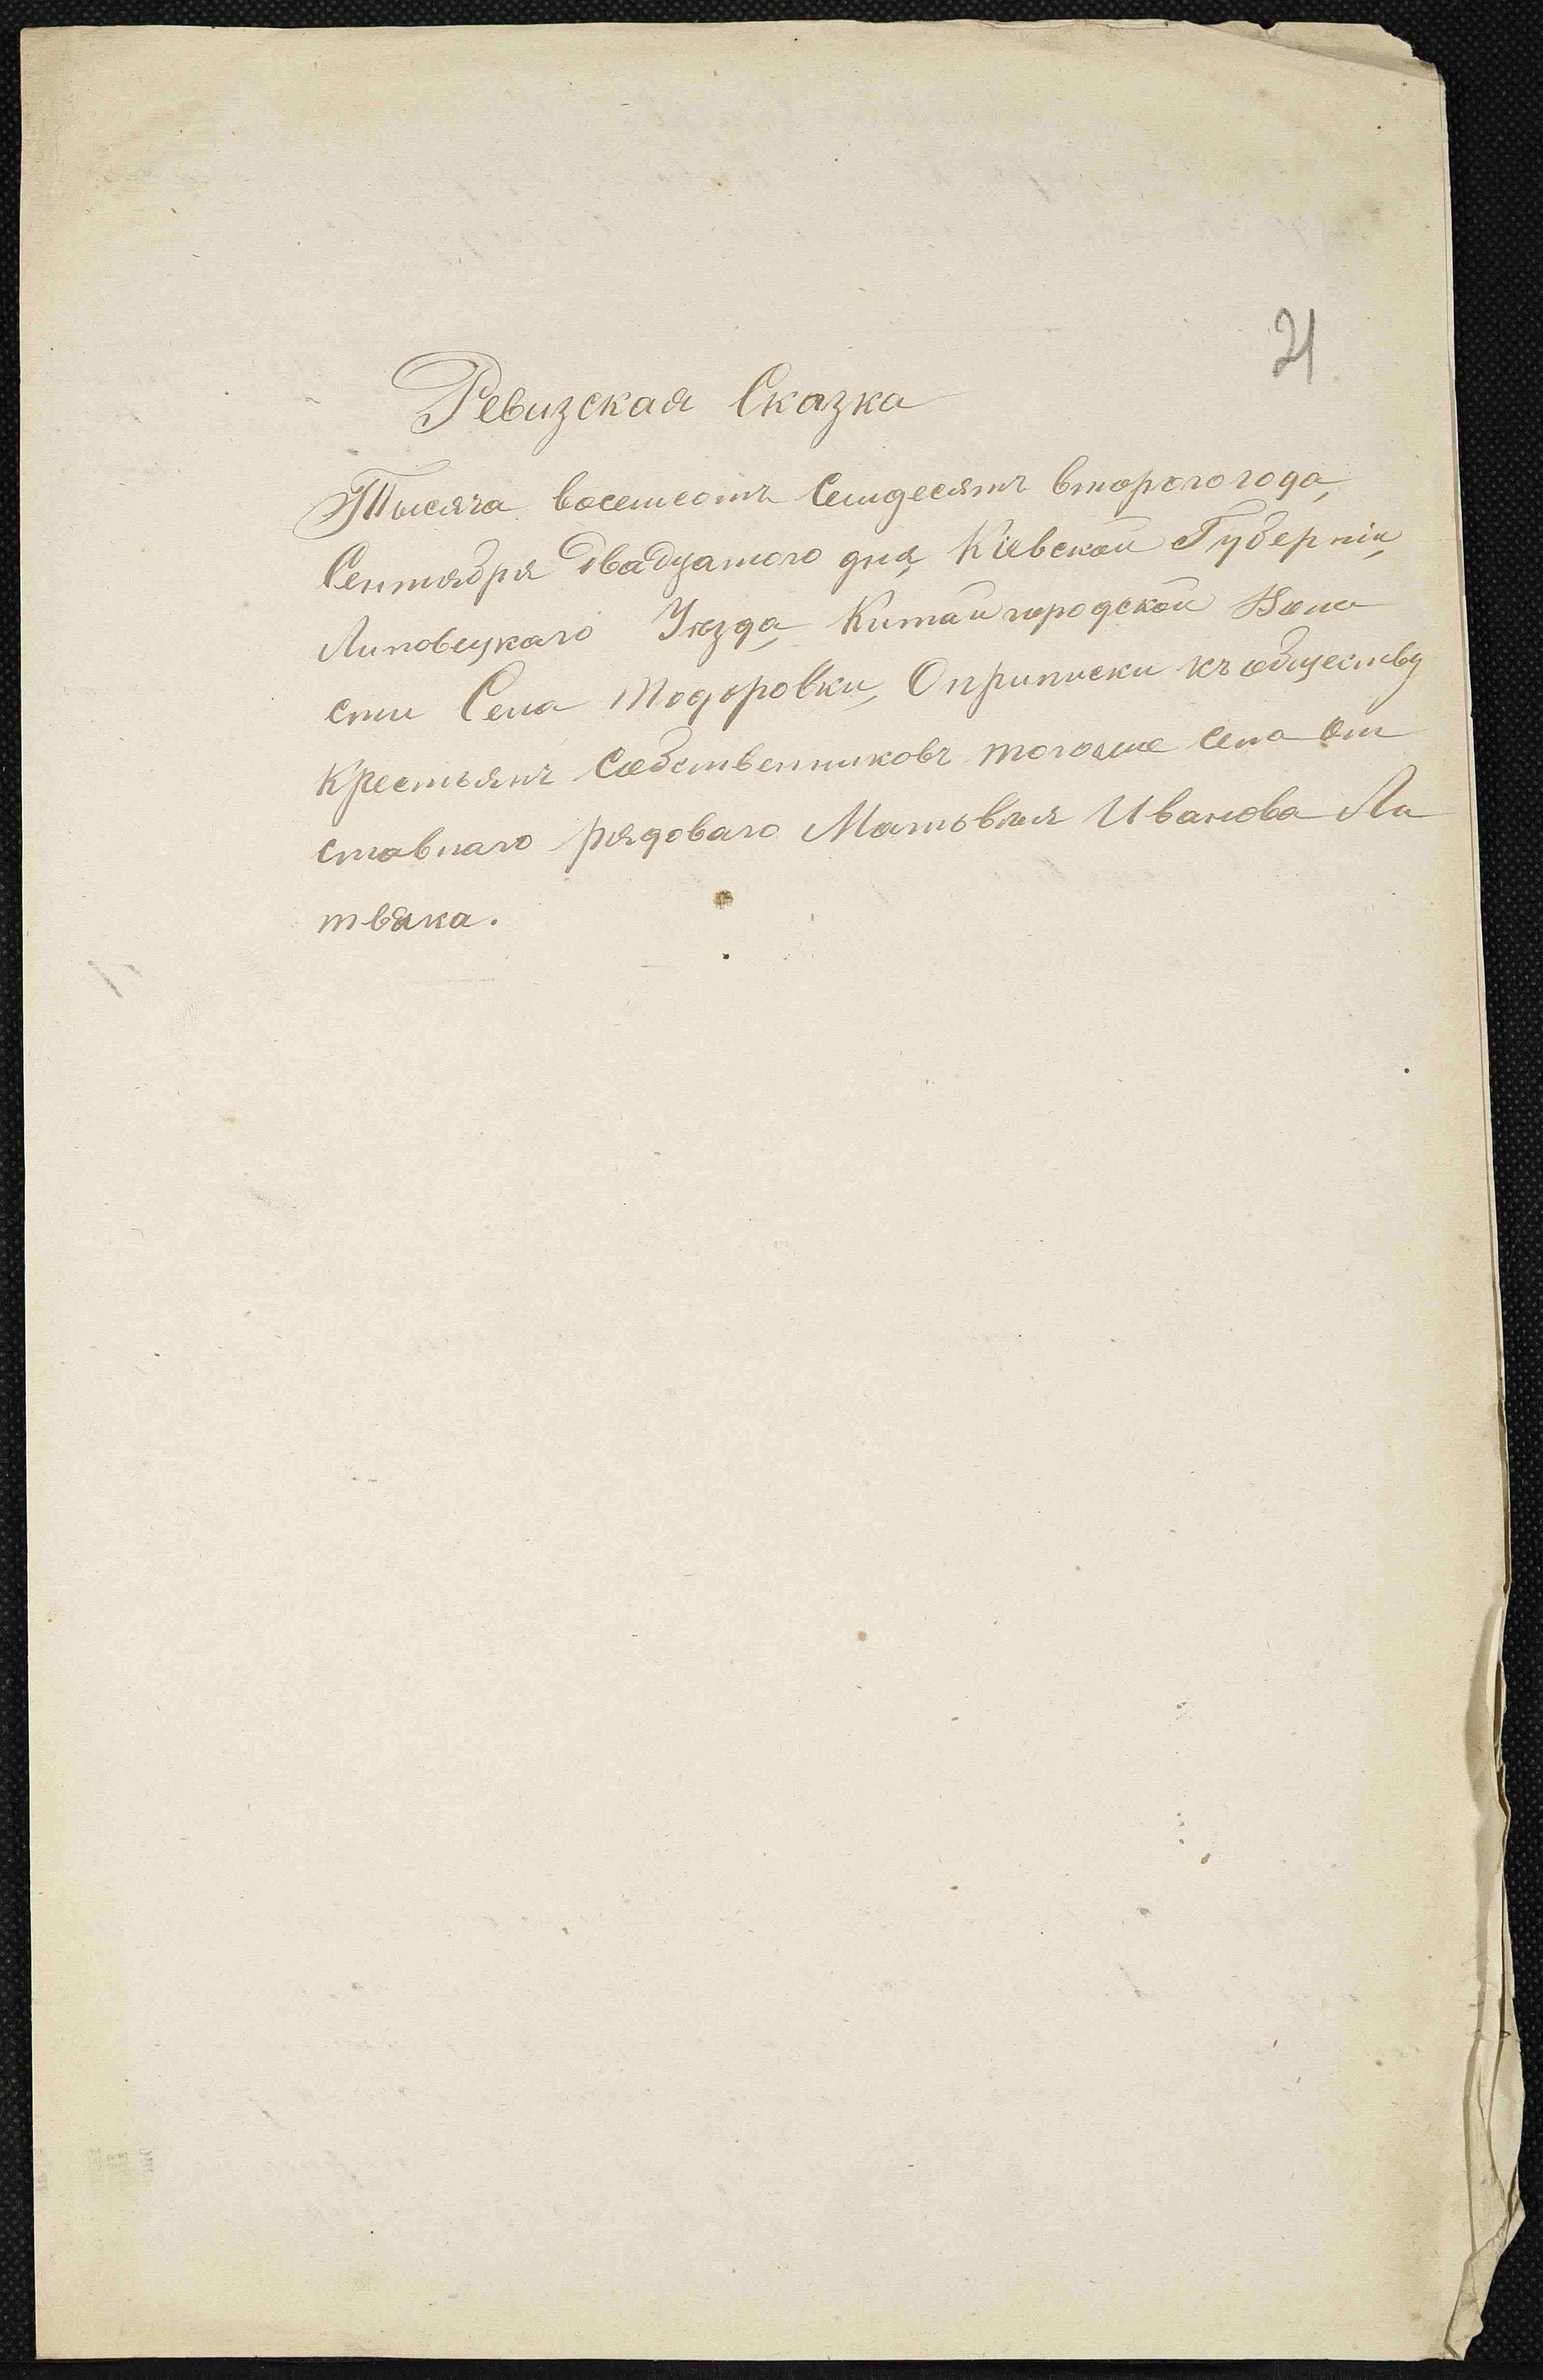 21
Ревизская Сказка
Тысяча восемсотъ Семдесятъ второго года,
Сентября двадцатого дня, Кіевской Губерніи,
Липовецкаго Уезда, Китайгородской Воло
сти Села Тодоровки, О приписки къ обществу
крестьянъ собственниковъ тогоже села От
ставнаго рядоваго Матьвея Иванова Ли
твяка.